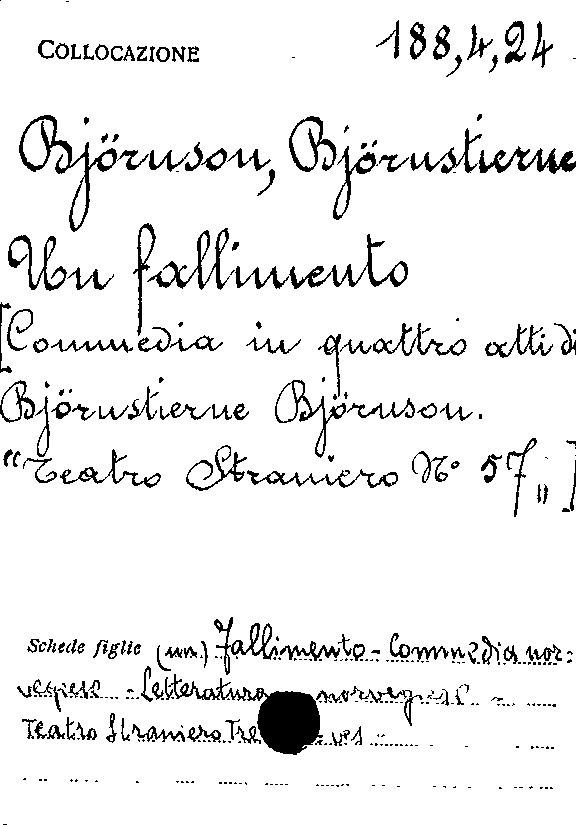 COLLOCAZIONE 188,4,24
Björnson, Björnstierne
Un fallimento
[Commedia in quattro atti di
Björnstierne Björnson.
"Teatro Straniero N° 57"]
Schede figlie (un) Fallimento - Commedia nor=
vegese - Letteratura norvegese -
Teatro Straniero Tre ves